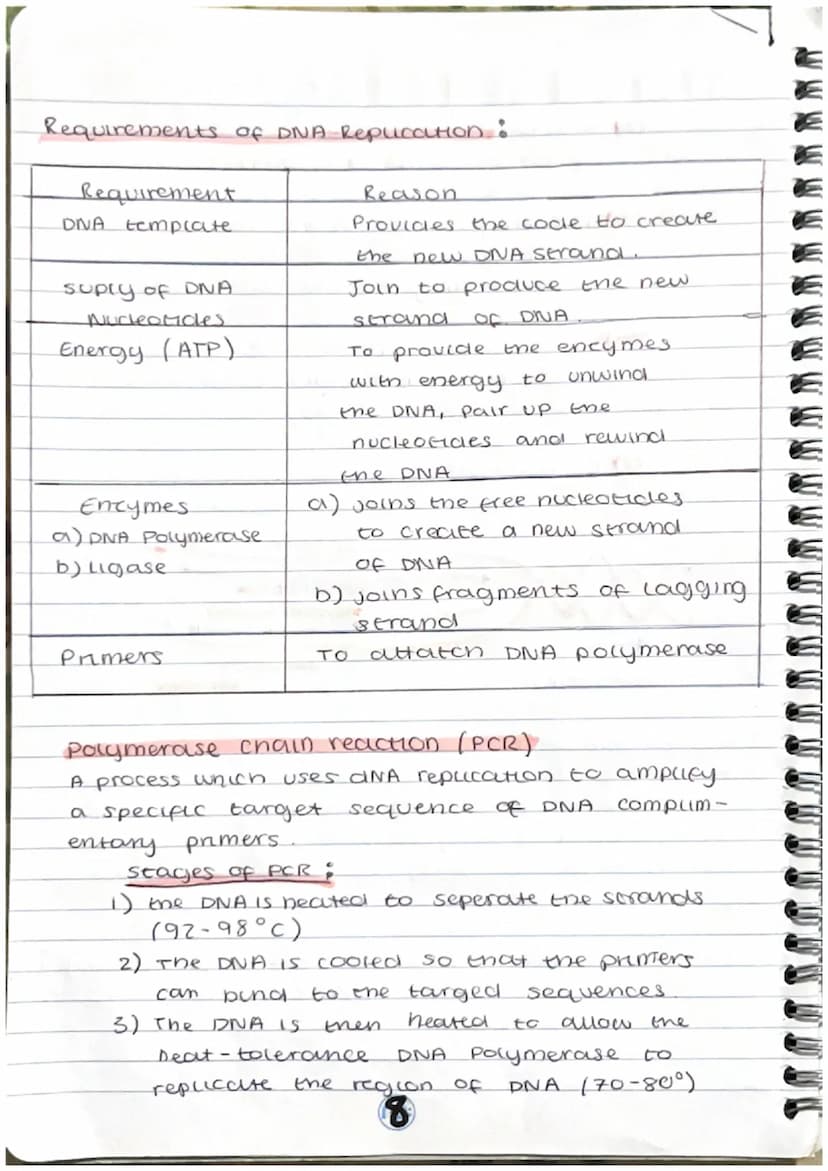 Requirements of DNA Replication :
Requirement Reason
DNA template Provides the code to create
the new DNA strand.
suply of DNA Join to produce the new
Nucleotides strand of DNA.
Energy (ATP) To provide the enzymes
with energy to unwind
the DNA, pair up the
nucleotides and rewind
the DNA
Enzymes a) joins the free nucleotides
a) DNA Polymerase to create a new strand
b) Ligase OF DNA
b) joins fragments of lagging
strand
Primers To attatch DNA polymerase
Polymerase chain reaction (PCR)
A process which uses DNA replication to amplify
a specific target sequence of DNA complim-
entary primers.
Stages of PCR :
1) the DNA is heated to seperate the strands
(92-98°C)
2) The DNA is cooled so that the primers
can bind to the targed sequences.
3) The DNA is then heated to allow the
heat-tolerance DNA Polymerase to
replicate the region of DNA (70-80°)
8